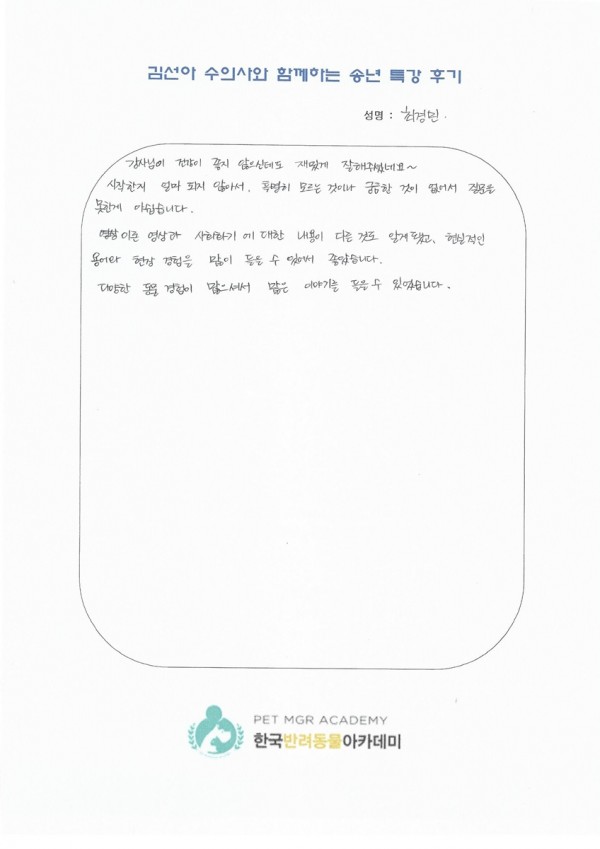 김선아 수의사와 함께하는 송년 특강 후기
성명 : 최경민
강사님이 건강이 좋지 않으신데도 재밌게 잘해주셨네요~
시작한지 얼마 되지 않아서, 특별히 모르는 것이나 궁금한 것이 없어서 질문을
못한게 아쉽습니다.
이론 영상과 사회화하기 에 대한 내용이 다른 것도 알게 됐고, 현실적인
용어와 현장 경험을 많이 들을 수 있어서 좋았습니다.
다양한 동물 경험이 많으셔서 많은 이야기를 들을 수 있었습니다.
PET MGR ACADEMY
한국반려동물아카데미